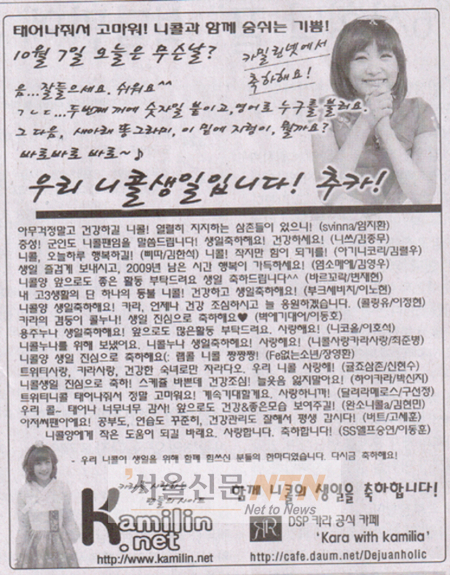 태어나줘서 고마워! 니콜과 함께 숨쉬는 기쁨!
10월 7일 오늘은 무슨날?
카밀린넷에서
축하해요!
음...잘들으세요. 쉬워요^^
ㄱㄴㄷ...두번째 끼에 숫자일 붙이고,영어로 누구를 불러요.
그 다음, 새아래 똥그라미, 이 밑에 지렁이, 뭘까요?
바로바로 바로~♪
우리 니콜생일입니다! 추카!
아무걱정말고 건강하길 니콜! 열렬히 지지하는 삼촌들이 있으니! (svinna/임지환)
충성! 군인도 니콜팬임을 말씀드립니다! 생일축하해요! 건강하세요! (니쓰/김종무)
니콜, 오늘하루 행복하길! (삐딱/김한석) 니콜! 작지만 힘이 되기를! (아기니코리/김렬우)
생일 즐겁게 보내시고, 2009년 남은 시간 행복이 가득하세요! (염소메에/김영우)
니콜양 앞으로도 좋은 활동 부탁드려요 생일 축하드립니다^^ (바르꼬락/변제현)
내 고3생활의 단 하나의 등불 니콜! 건강하고 생일축하해요! (부크세비지/이노현)
니콜양 생일축하해요! 카라, 언제나 건강 조심하시고 늘 응원하겠습니다. (콜링유/이정현)
카라의 감동이 콜누나! 생일 진심으로 축하해요♥ (벽에기대어/이동호)
용주누나 생일축하해요! 앞으로도 많은활동 부탁드려요. 사랑해요! (니코올/이호석)
니콜누나를 위해 보냈어요. 니콜누나 생일축하해요! 사랑해요! (니콜사랑카라사랑/최준병)
니콜양 생일 진심으로 축하해요(: 랩콜 니콜 짱짱짱! (Fe없는소년/장영환)
트위티사랑, 카라사랑, 건강한 숙녀로만 자라다오. 우리 니콜 사랑해! (귤죠삼촌/신현수)
니콜생일 진심으로 축하! 스케쥴 바쁜데 건강조심! 늘웃음 잃지말아요! (하이카라/박신지)
트위티니콜 태어나줘서 정말 고마워요! 계속기대할게요. 사랑하니까! (달려라메로스/구선장)
우리 콜~ 태어나 너무너무 감사! 앞으로도 건강&좋은모습 보여주길! (완소니콜a/김현민)
아저씨팬이에요! 공부도, 연습도 꾸준히, 건강관리도 잘해서 평생 갑시다! (버트/고세훈)
니콜양에게 작은 도움이 되길 바래요. 사랑합니다. 축하합니다! (SS엘프승연/이동훈)
- 우리 니콜이 생일을 위해 함께 힘쓰신 분들의 한마디였습니다. 다시금 축하해요!
서울신문 NTN
Net to News
함께 니콜의 생일을 축하합니다!
Kamilin
.net
DSP 카라 공식 카페
'Kara with kamilia'
http://www.kamilin.net
http://cafe.daum.net/Dejuanholic